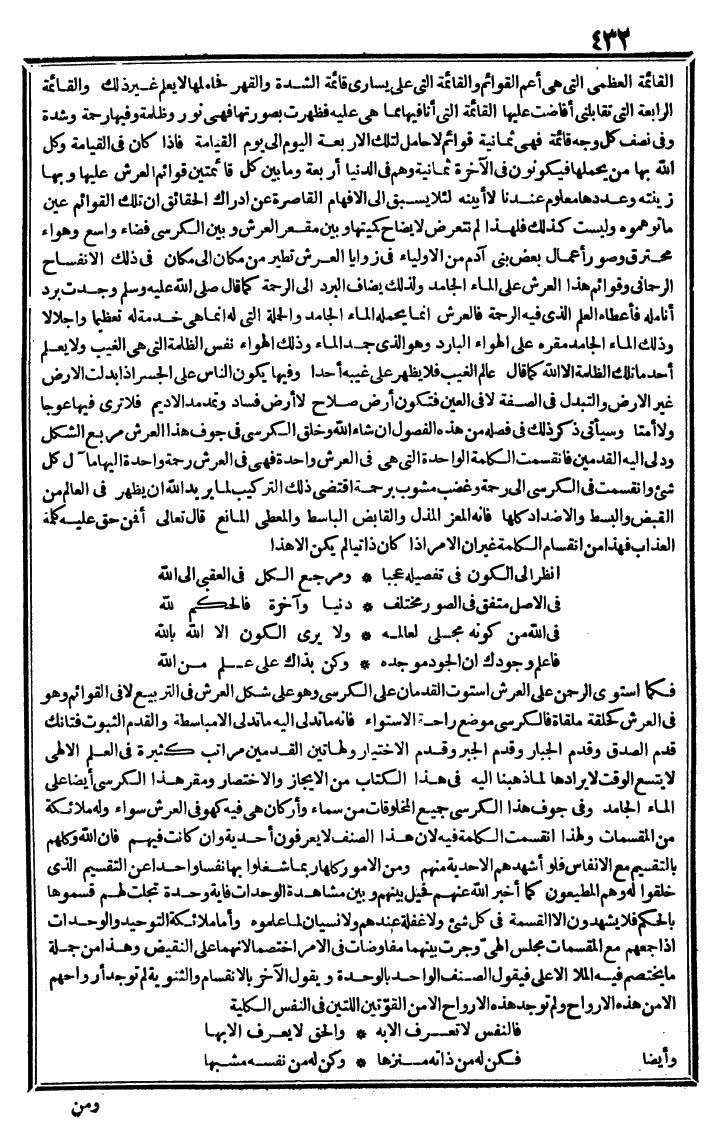 ٤٣٢
القائمة العظمى التى هى أعم القوائم والقائمة التى على يسارى قائمة الشدة والقهر فحاملها لا يعلم غير ذلك والقائمة
الرابعة التى تقابلنى أفاضت عليها القائمة التى أنا فيها مما هى عليه فظهرت بصورتها فهى نور وظلمة وفيها رحمة وشدة
وفى نصف كل وجه قائمة فهى ثمانية قوائم لا حامل لتلك الاربعة اليوم الى يوم القيامة فاذا كان فى القيامة وكل
الله بها من يحملها فيكونون فى الآخرة ثمانية وهم فى الدنيا أربعة وما بين كل قائمتين قوائم العرش عليها وبها
زينته وعددها معلوم عندنا لا أبينه لئلا يسبق الى الافهام القاصرة عن ادراك الحقائق ان تلك القوائم عين
ما توهموه وليست كذلك فلهذا لم نتعرض لايضاح كميتها وبين مقعر العرش وبين الكرسى فضاء واسع وهواء
محترق وصور أعمال بعض بنى آدم من الاولياء فى زوايا العرش تطير من مكان الى مكان فى ذلك الانفساح
الرحمانى وقوائم هذا العرش على الماء الجامد ولذلك يضاف البرد الى الرحمة كما قال صلى الله عليه وسلم وجدت برد
أنامله فأعطاه العلم الذى فيه الرحمة فالعرش انما يحمله الماء الجامد والحملة التى له انما هى خدمة له تعظيما واجلالا
وذلك الماء الجامد مقره على الهواء البارد وهو الذى جمد الماء وذلك الهواء نفس الظلمة التى هى الغيب ولا يعلم
أحد ما تلك الظلمة الا الله كما قال عالم الغيب فلا يظهر على غيبه أحدا وفيها يكون الناس على الجسر اذا بدلت الارض
غير الارض والتبدل فى الصفة لا فى العين فتكون أرض صلاح لا أرض فساد وتمد مد الاديم فلا ترى فيها عوجا
ولا أمتا وسيأتى ذكر ذلك فى فصله من هذه الفصول ان شاء الله وخلق الكرسى فى جوف هذا العرش مربع الشكل
ودلى اليه القدمين فانقسمت الكلمة الواحدة التى هى فى العرش واحدة فهى فى العرش رحمة واحدة اليها مآل كل
شئ وانقسمت فى الكرسى الى رحمة وغضب مشوب برحمة اقتضى ذلك التركيب لما يريد الله ان يظهر فى العالم من
القبض والبسط والاضداد كلها فانه المعز المذل والقابض الباسط والمعطى المانع قال تعالى أفمن حق عليه كلمة
العذاب فهذا من انقسام الكلمة غير ان الامر اذا كان ذاتيا لم يكن الا هذا
انظر الى الكون فى تفصيله عجبا * ومرجع الكل فى العقبى الى الله
فى الاصل متفق فى الصور مختلف * دنيا وآخرة فالحكم لله
فى الله من كونه مجلى لعالمه * ولا يرى الكون الا الله بالله
فاعلم وجودك ان الجود موجده * وكن بذاك على علم من الله
فكما استوى الرحمن على العرش استوت القدمان على الكرسى وهو على شكل العرش فى التربيع لا فى القوائم وهو
فى العرش كحلقة ملقاة فالكرسى موضع راحة الاستواء فانه ما تدلى اليه ما تدلى الا مباسطة والقدم الثبوت فتانك
قدم الصدق وقدم الجبار وقدم الجبر وقدم الاختيار ولهاتين القدمين مراتب كثيرة فى العلم الالهى
لا يتسع الوقت لايرادها لما ذهبنا اليه فى هذا الكتاب من الايجاز والاختصار ومقر هذا الكرسى أيضا على
الماء الجامد وفى جوف هذا الكرسى جميع المخلوقات من سماء وأركان هى فيه كهو فى العرش سواء وله ملائكة
من المقسمات ولهذا انقسمت الكلمة فيه لان هذا الصنف لا يعرفون أحدية وان كانت فيهم فان الله وكلهم
بالتقسيم مع الانفاس فلو أشهدهم الاحدية منهم ومن الامور كلها ربما شغلوا بها نفسا واحدا عن التقسيم الذى
خلقوا له وهم المطيعون كما أخبر الله عنهم فحيل بينهم وبين مشاهدة الوحدات فأية وحدة تجلت لهم قسموها
بالحكم فلا يشهدون الا القسمة فى كل شئ ولا غفلة عندهم ولا نسيان لما علموه وأما ملائكة التوحيد والوحدات
اذا جمعهم مع المقسمات مجلس الهى وجرت بينهما مفاوضات فى الامر اختصما لانهما على النقيض وهذا من جملة
ما يختصم فيه الملأ الاعلى فيقول الصنف الواحد بالوحدة ويقول الآخر بالانقسام والثنوية لم توجد أرواحهم
الا من هذه الارواح ولم توجد هذه الارواح الا من القوّتين اللتين فى النفس الكلية
فالنفس لا تعرف الا به * والحق لا يعرف الا بها
وأيضا فكن له من ذاته منزها * وكن له من نفسه مشبها
ومن